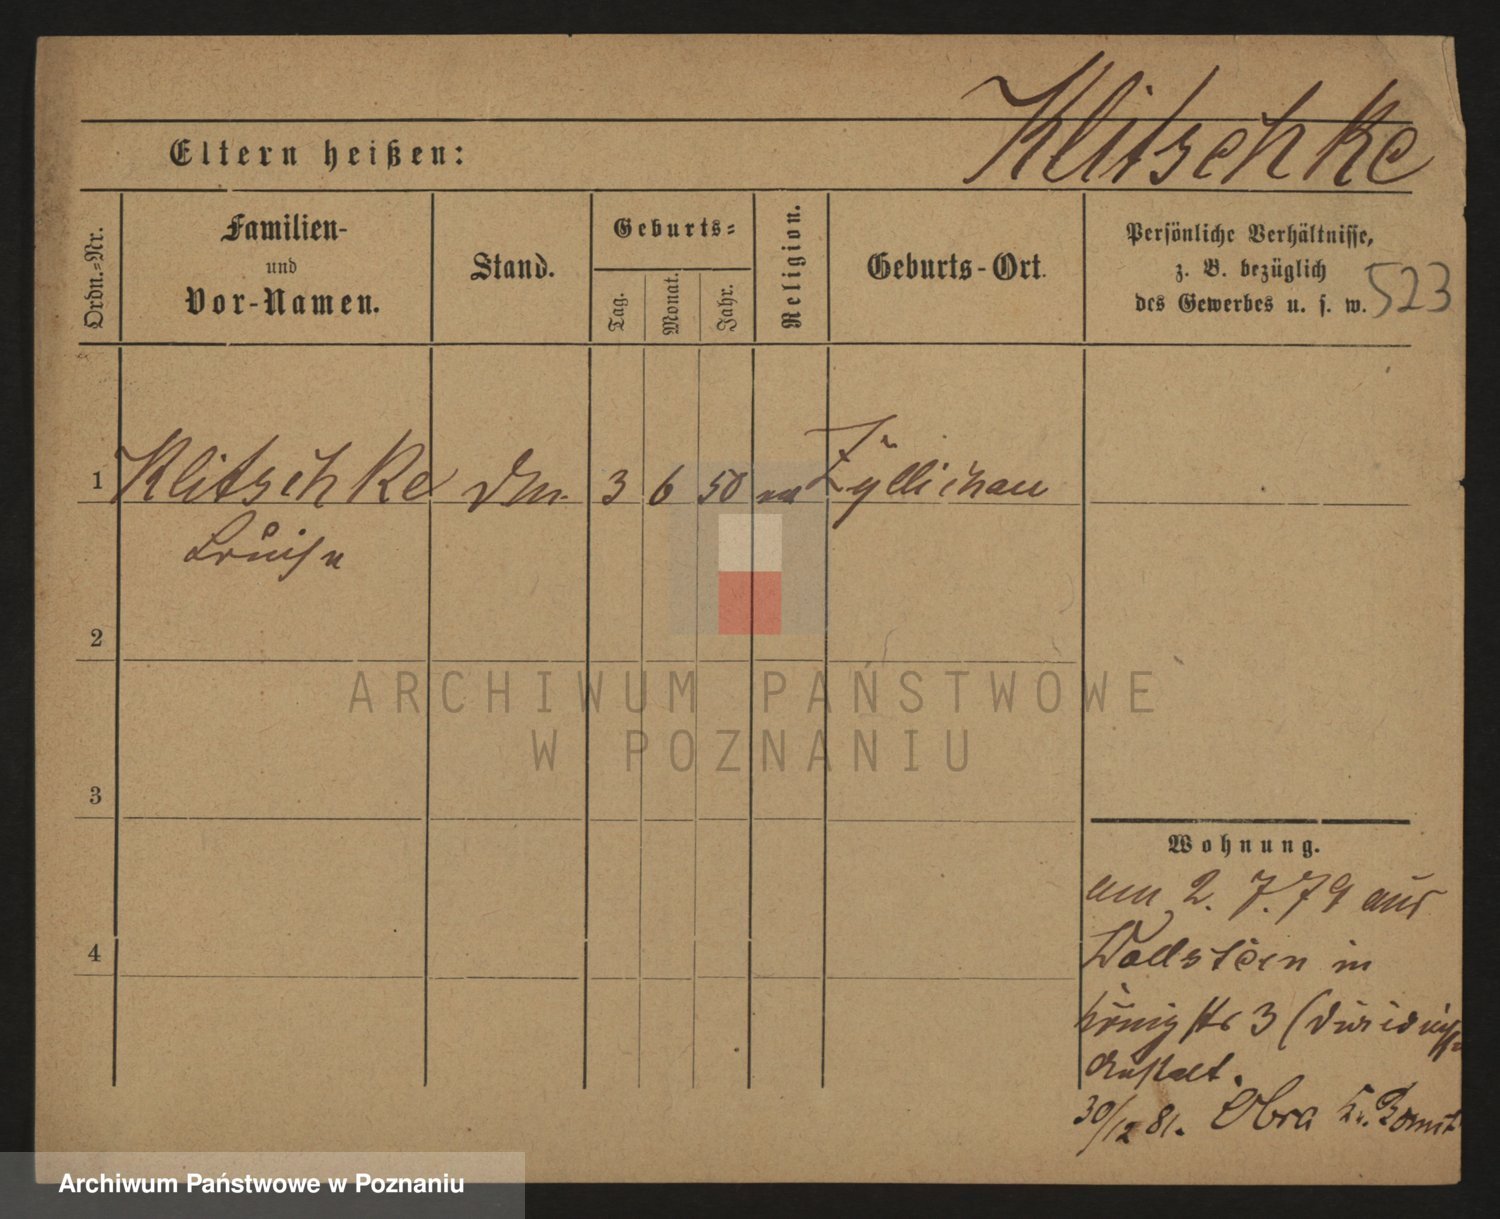 Klitschke
Eltern heißen:
Ordn.=Nr.
Familien-
und
Vor-Namen.
Stand.
Geburts=
Tag.
Monat.
Jahr.
Religion.
Geburts-Ort.
Persönliche Verhältnisse,
z. B. bezüglich
des Gewerbes u. s. w.
523
1 Klitschke 3 6 50 Züllichau
Louise
2
3
4
Wohnung.
am 2. 7. 79 aus
Wollstein in
Königstr 3 (
Anstalt.
30/12 81. Obra Kr. Bomst
ARCHIWUM PAŃSTWOWE
W POZNANIU
Archiwum Państwowe w Poznaniu